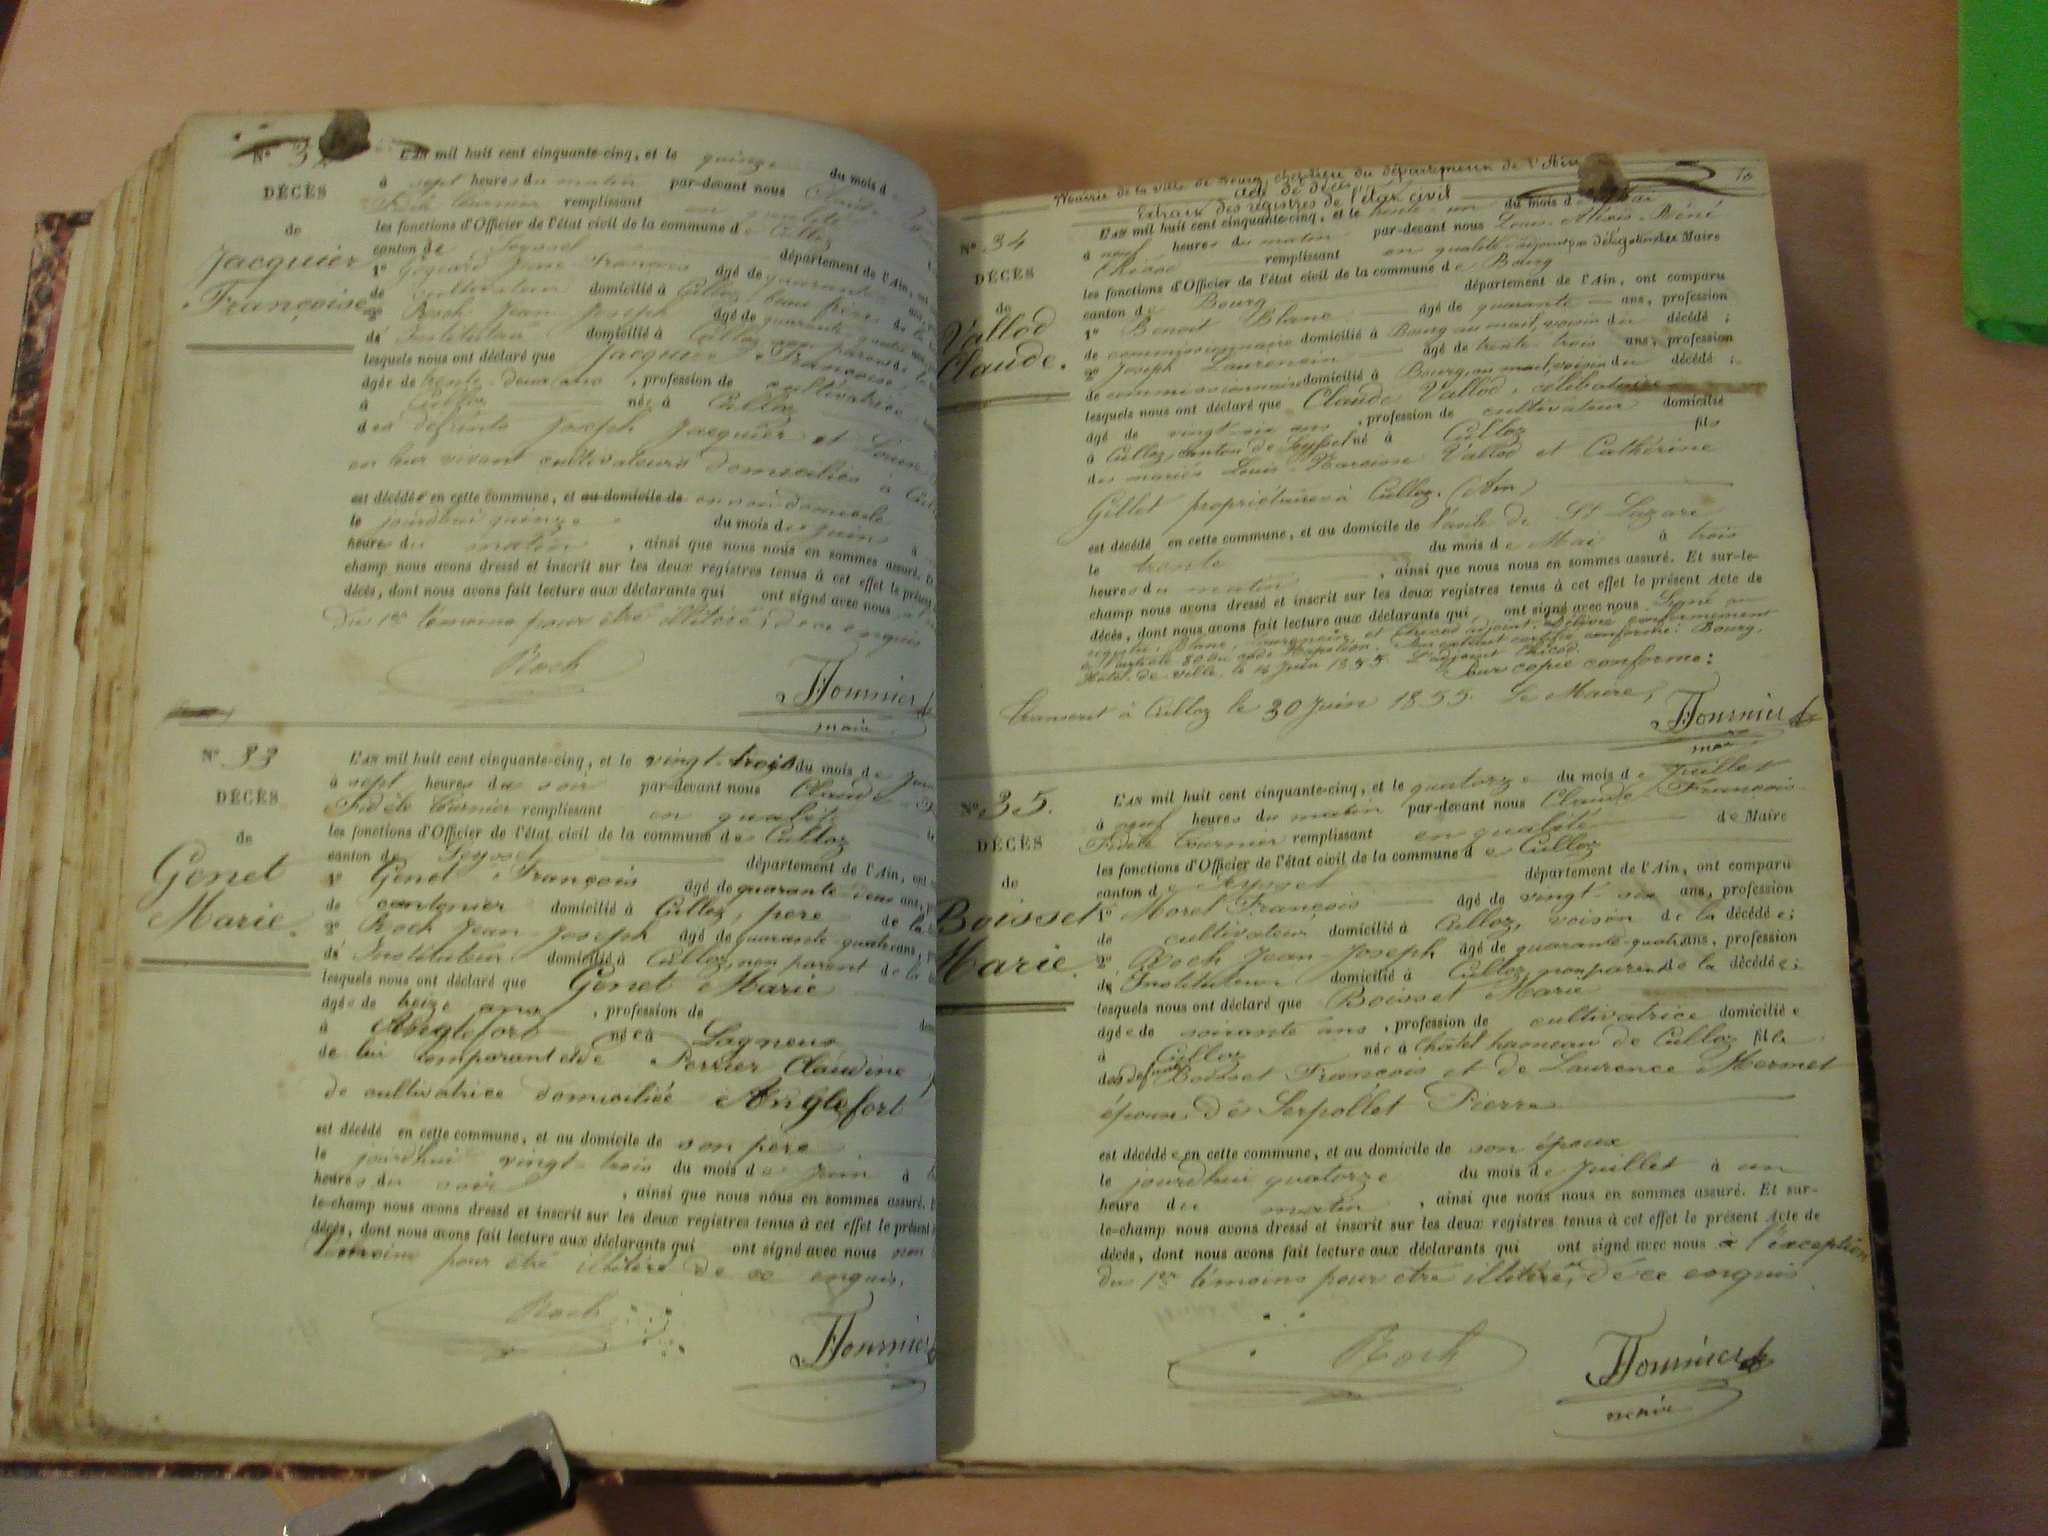 N° 3
DÉCÈS
de
Jacquier
Françoise
L'AN mil huit cent cinquante-cinq, et le quinze du mois d
à sept heures du matin par-devant nous Claude
Fidèle Fournier remplissant en qualité
les fonctions d'Officier de l'état civil de la commune de Culloz
canton de Seyssel département de l'Ain, ont
1° Jean François âgé de quarante
de cultivateur domicilié à Culloz, beau frère de la
2° Roch Jean Joseph âgé de quarante quatre ans
de Instituteur domicilié à Culloz non parent de la
lesquels nous ont déclaré que Jacquier Françoise
âgée de trente-deux ans, profession de cultivatrice
à Culloz née à Culloz
des défunts Joseph Jacquier et Louise
en leur vivant cultivateurs domiciliés à Culloz
est décédée en cette commune, et au domicile de en son domicile
le jourdhui quinze du mois de juin à
heures du matin, ainsi que nous nous en sommes assuré.
champ nous avons dressé et inscrit sur les deux registres tenus à cet effet le présent
décès, dont nous avons fait lecture aux déclarants qui ont signé avec nous
du 1er témoins pour être illitéré, de ce enquis
Roch
Fournier
maire
N° 33
DÉCÈS
de
Genet
Marie.
L'AN mil huit cent cinquante-cinq, et le vingt-trois du mois de juin
à sept heures du soir par-devant nous Claude
Fidèle Fournier remplissant en qualité
les fonctions d'Officier de l'état civil de la commune de Culloz
canton de Seyssel département de l'Ain, ont
1° Genet François âgé de quarante deux ans,
de cantonier domicilié à Culloz, père de la
2° Roch Jean-Joseph âgé de quarante-quatre ans,
de Instituteur domicilié à Culloz, non parent de la
lesquels nous ont déclaré que Genet Marie
âgée de treize ans, profession de
à Anglefort née à Lagneux
de lui comparant et de Perrier Claudine
de cultivatrice domiciliée Anglefort
est décédé en cette commune, et au domicile de son père
le jourdhui vingt-trois du mois de juin à
heures du soir, ainsi que nous nous en sommes assuré.
le-champ nous avons dressé et inscrit sur les deux registres tenus à cet effet le présent
décès, dont nous avons fait lecture aux déclarants qui ont signé avec nous non
témoins pour être illitéré de ce enquis.
Roch
Fournier
Mairie de la ville de Bourg, chef-lieu du département de l'Ain
acte de décès
Extrait des registres de l'état civil
N° 34
DÉCÈS
de
Vallod
Claude.
L'AN mil huit cent cinquante-cinq, et le trente-un du mois de Mai
à neuf heures du matin par-devant nous Louis-Alexis-Réné
Chicod remplissant en qualité d'adjoint par délégation de Maire
les fonctions d'Officier de l'état civil de la commune de Bourg
canton de Bourg département de l'Ain, ont comparu
1° Benoit Blanc âgé de quarante ans, profession
de commissionnaire domicilié à Bourg au mail, voisin du décédé;
2° Joseph Laurencin âgé de trente-trois ans, profession
de commissionnaire domicilié à Bourg, au mail, voisin du décédé;
lesquels nous ont déclaré que Claude Vallod, célibataire
âgé de vingt-six ans, profession de cultivateur domicilié
à Culloz, canton de Seyssel né à Culloz fils
des mariés Louis-Narcisse Vallod et Cathérine
Gillet propriétaires à Culloz. (Ain)
est décédé en cette commune, et au domicile de l'asile de St Lazare
le trente du mois de Mai à trois
heures du matin, ainsi que nous nous en sommes assuré. Et sur-le-
champ nous avons dressé et inscrit sur les deux registres tenus à cet effet le présent Acte de
décès, dont nous avons fait lecture aux déclarants qui ont signé avec nous. Signé au
registre: Blanc, Laurencin, et Chicod adjoint. Délivré conformement
à l'article 80 du code Napoléon. Pour extrait certifié conforme: Bourg,
Hôtel-de-ville, le 14 Juin 1855. L'adjoint Chicod.
Pour copie conforme:
Transcrit à Culloz le 30 Juin 1855. Le Maire,
Fournier
maire
N° 35.
DÉCÈS
de
Boisset
Marie.
L'AN mil huit cent cinquante-cinq, et le quatorze du mois de Juillet
à neuf heures du matin par-devant nous Claude François
Fidèle Fournier remplissant en qualité de Maire
les fonctions d'Officier de l'état civil de la commune de Culloz
canton de Seyssel département de l'Ain, ont comparu
1° Morel François âgé de vingt-six ans, profession
de cultivateur domicilié à Culloz, voison de la décédée;
2° Roch Jean-Joseph âgé de quarante-quatre ans, profession
de Instituteur domicilié à Culloz, non parent de la décédée;
lesquels nous ont déclaré que Boisset Marie
âgée de soixante ans, profession de cultivatrice domiciliée
à Culloz née à Châtel hameau de Culloz fille
des défunts Boisset François et de Laurence Mermet
épouse de Serpollet Pierre
est décédée en cette commune, et au domicile de son époux
le jourdhui quatorze du mois de Juillet à un
heure du matin, ainsi que nous nous en sommes assuré. Et sur-
le-champ nous avons dressé et inscrit sur les deux registres tenus à cet effet le présent Acte de
décès, dont nous avons fait lecture aux déclarants qui ont signé avec nous à l'exception
du 1er témoins pour être illitéré, de ce enquis
Roch
Fournier
maire